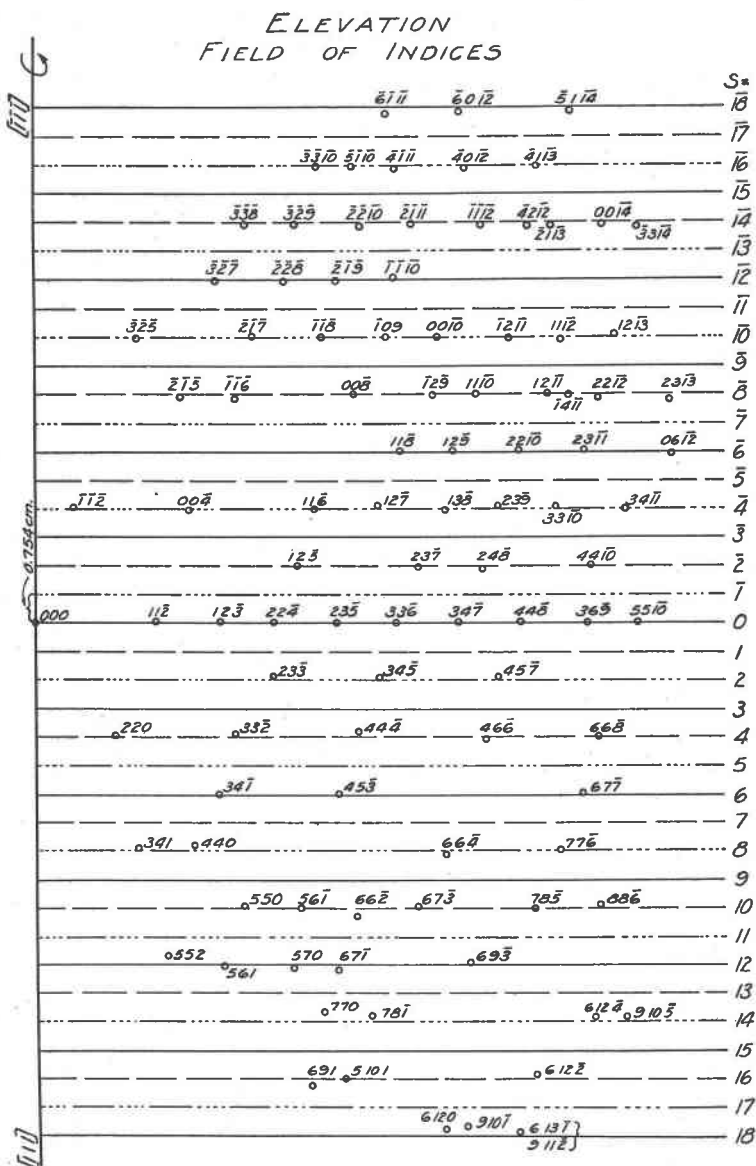 ELEVATION
FIELD OF INDICES
S=
[1̄1̄1̄]
6̄1̄1̄1̄ 6̄01̄2̄ 5̄11̄4̄ 1̄8̄
1̄7̄
3̄3̄1̄0̄ 5̄1̄1̄0̄ 4̄1̄1̄1̄ 4̄01̄2̄ 4̄11̄3̄ 1̄6̄
1̄5̄
3̄3̄8̄ 3̄2̄9̄ 2̄2̄1̄0̄ 2̄1̄1̄1̄ 1̄1̄1̄2̄ 4̄21̄2̄ 2̄11̄3̄ 001̄4̄ 3̄31̄4̄ 1̄4̄
1̄3̄
3̄2̄7̄ 2̄2̄8̄ 2̄1̄9̄ 1̄1̄1̄0̄ 1̄2̄
1̄1̄
3̄2̄5̄ 2̄1̄7̄ 1̄1̄8̄ 1̄09̄ 001̄0̄ 1̄21̄1̄ 111̄2̄ 121̄3̄ 1̄0̄
9̄
2̄1̄5̄ 1̄1̄6̄ 008̄ 1̄29̄ 111̄0̄ 121̄1̄ 1̄41̄1̄ 221̄2̄ 231̄3̄ 8̄
7̄
118̄ 129̄ 221̄0̄ 231̄1̄ 061̄2̄ 6̄
5̄
1̄1̄2̄ 004̄ 116̄ 127̄ 138̄ 239̄ 331̄0̄ 341̄1̄ 4̄
3̄
0.754cm.
125̄ 237̄ 248̄ 441̄0̄ 2̄
1̄
000 112̄ 123̄ 224̄ 235̄ 336̄ 347̄ 448̄ 369̄ 551̄0̄ 0
1
233̄ 345̄ 457̄ 2
3
220 332̄ 444̄ 466̄ 668̄ 4
5
341̄ 453̄ 677̄ 6
7
341 440 664̄ 776̄ 8
9
550 561̄ 662̄ 673̄ 785̄ 886̄ 10
11
552 561 570 671̄ 693̄ 12
13
770 781̄ 6124̄ 9105̄ 14
15
691 5101 6122̄ 16
17
6120 9101̄ 6131̄ 9112̄ 18
[111]